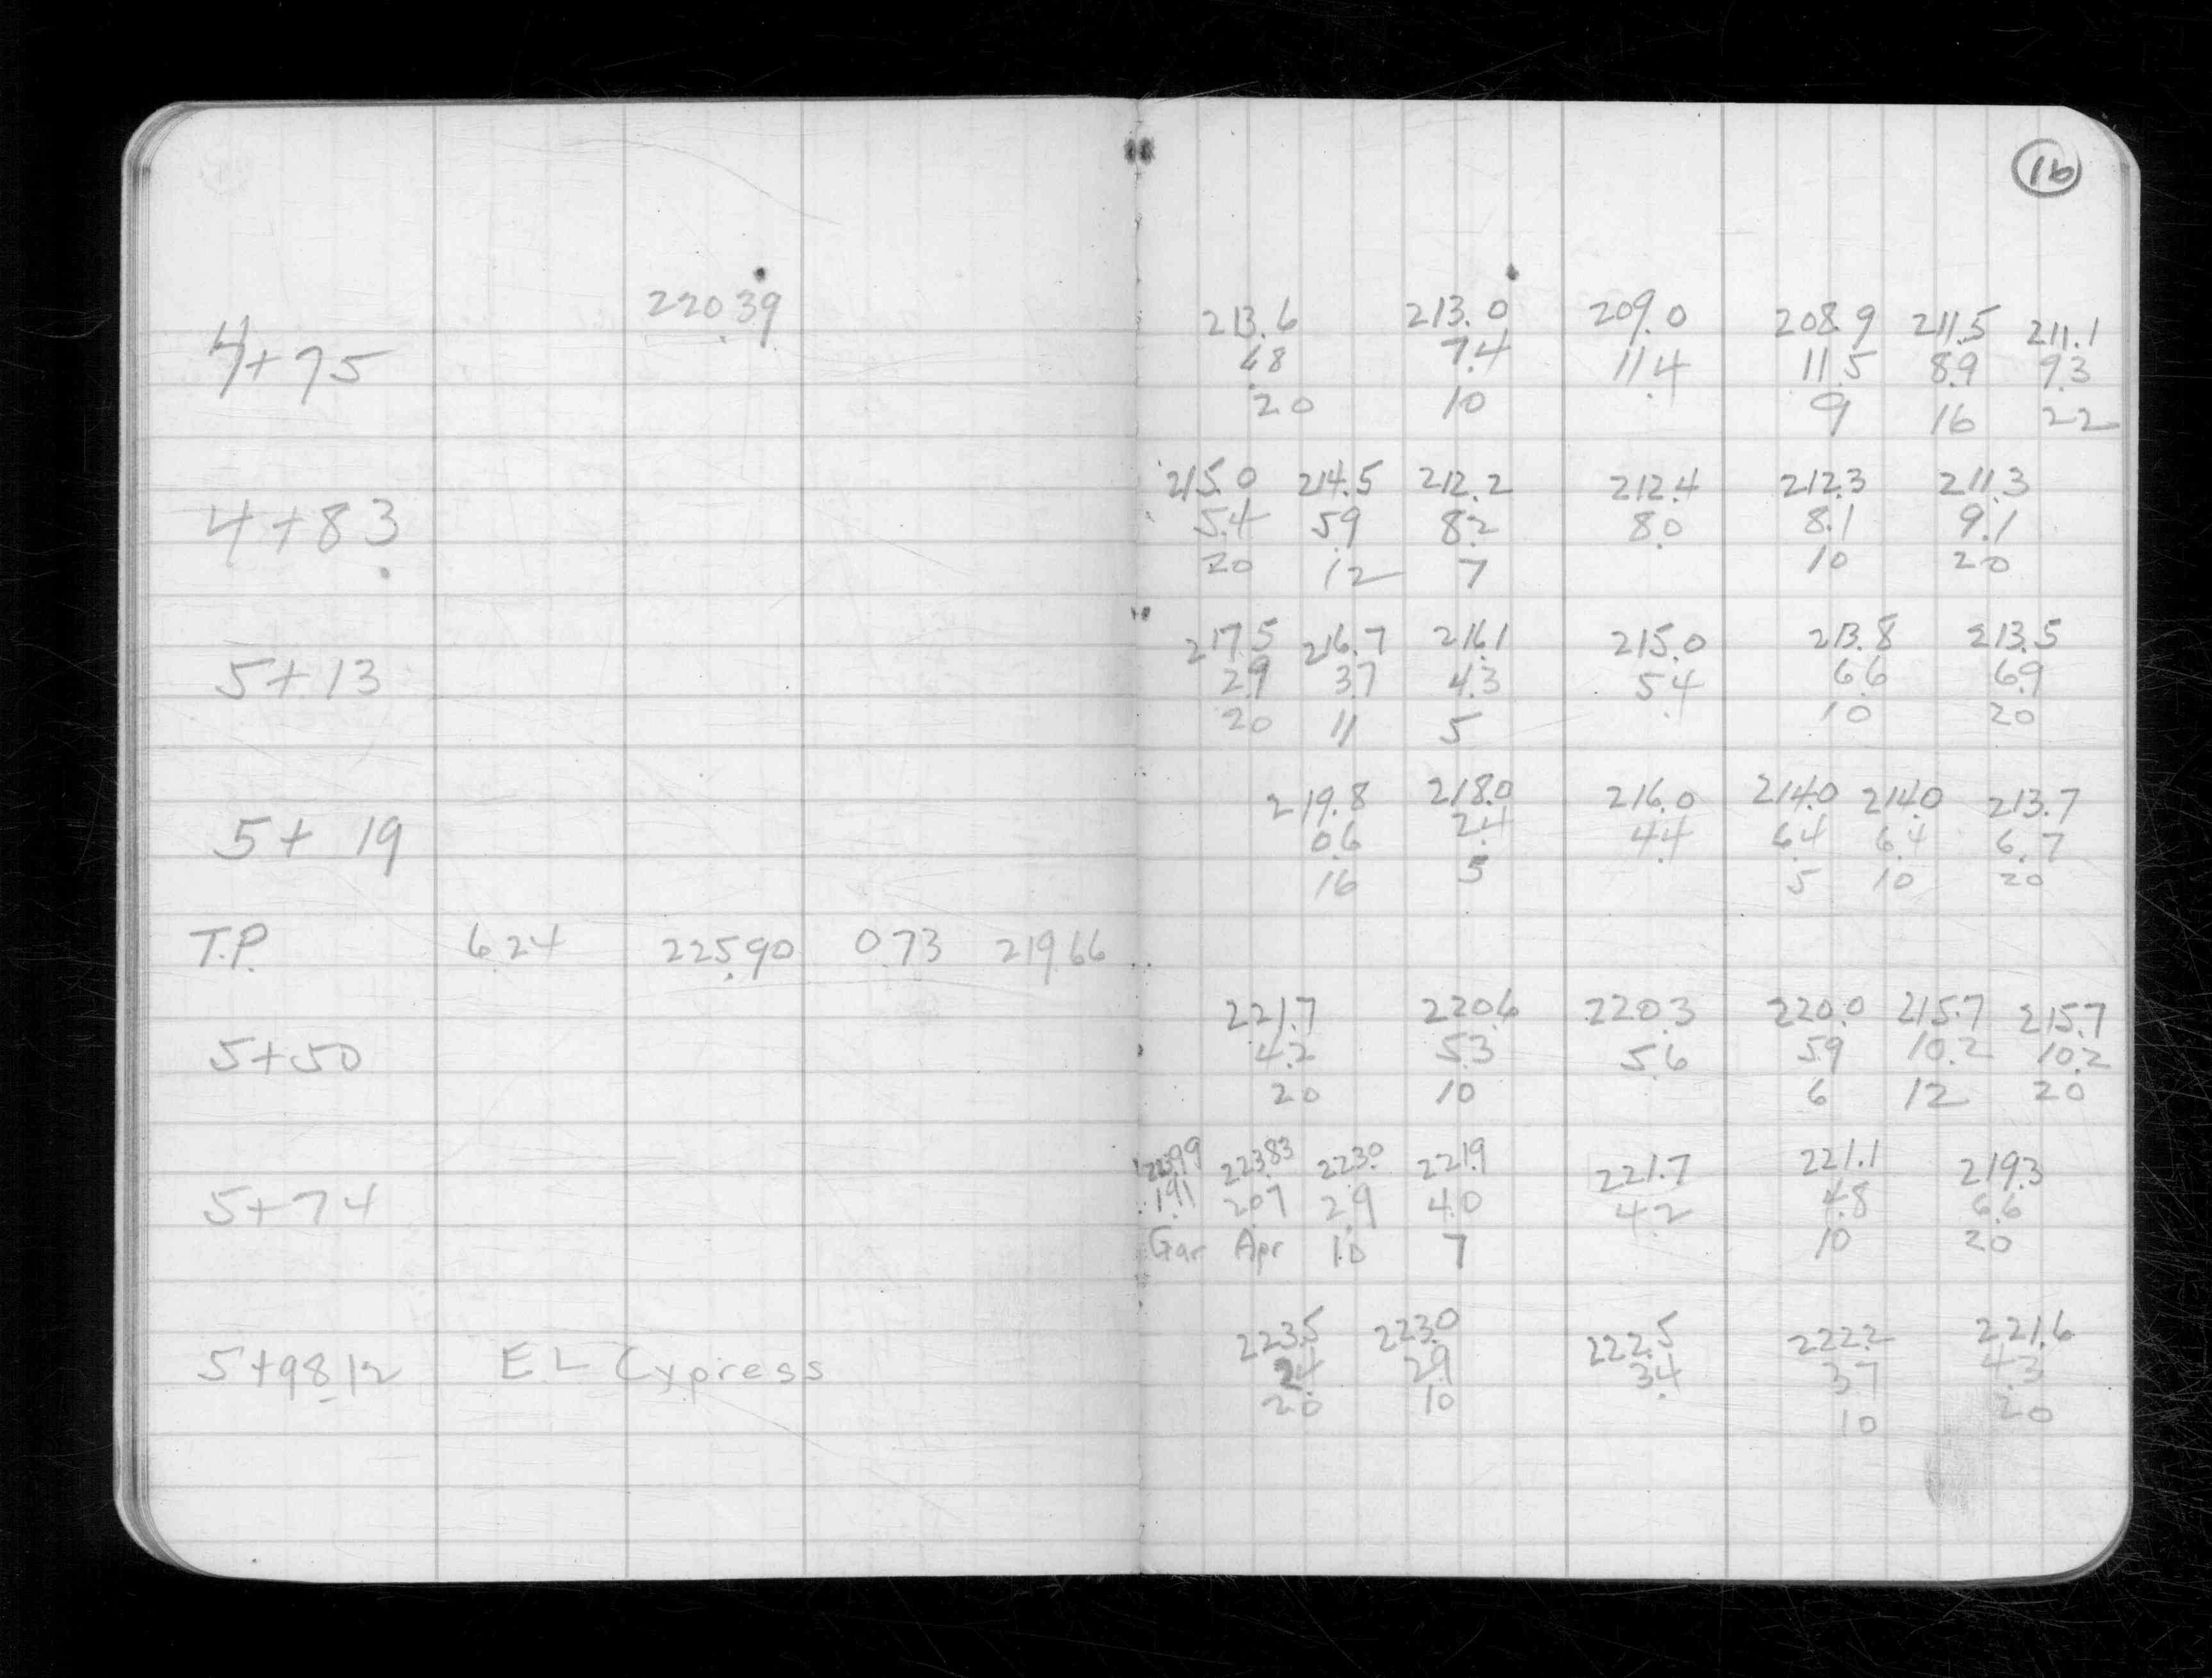 16
220.39
213.6 213.0 209.0 208.9 211.5 211.1
4+75 6.8 7.4 11.4 11.5 8.9 9.3
20 10 9 16 22
215.0 214.5 212.2 212.4 212.3 211.3
4+83 5.4 5.9 8.2 8.0 8.1 9.1
20 12 7 10 20
217.5 216.7 216.1 215.0 213.8 213.5
5+13 2.9 3.7 4.3 5.4 6.6 6.9
20 11 5 10 20
219.8 218.0 216.0 214.0 214.0 213.7
5+19 0.6 2.4 4.4 6.4 6.4 6.7
16 5 5 10 20
T.P. 6.24 225.90 0.73 219.66
221.7 220.6 220.3 220.0 215.7 215.7
5+50 4.2 5.3 5.6 5.9 10.2 10.2
20 10 6 12 20
223.99 223.83 223.0 221.9 221.7 221.1 219.3
5+74 1.91 2.07 2.9 4.0 4.2 4.8 6.6
Gar Apr 10 7 10 20
223.5 223.0 222.5 222.2 221.6
5+98.12 EL Cypress 2.4 2.9 3.4 3.7 4.3
20 10 10 20